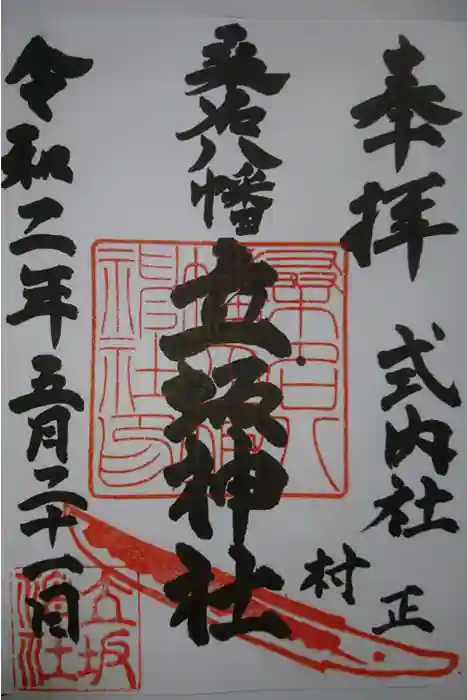 奉拝 式内社
村正
桑名八幡
立坂神社
令和二年五月二十一日
桑名八
神社印
立坂
神社